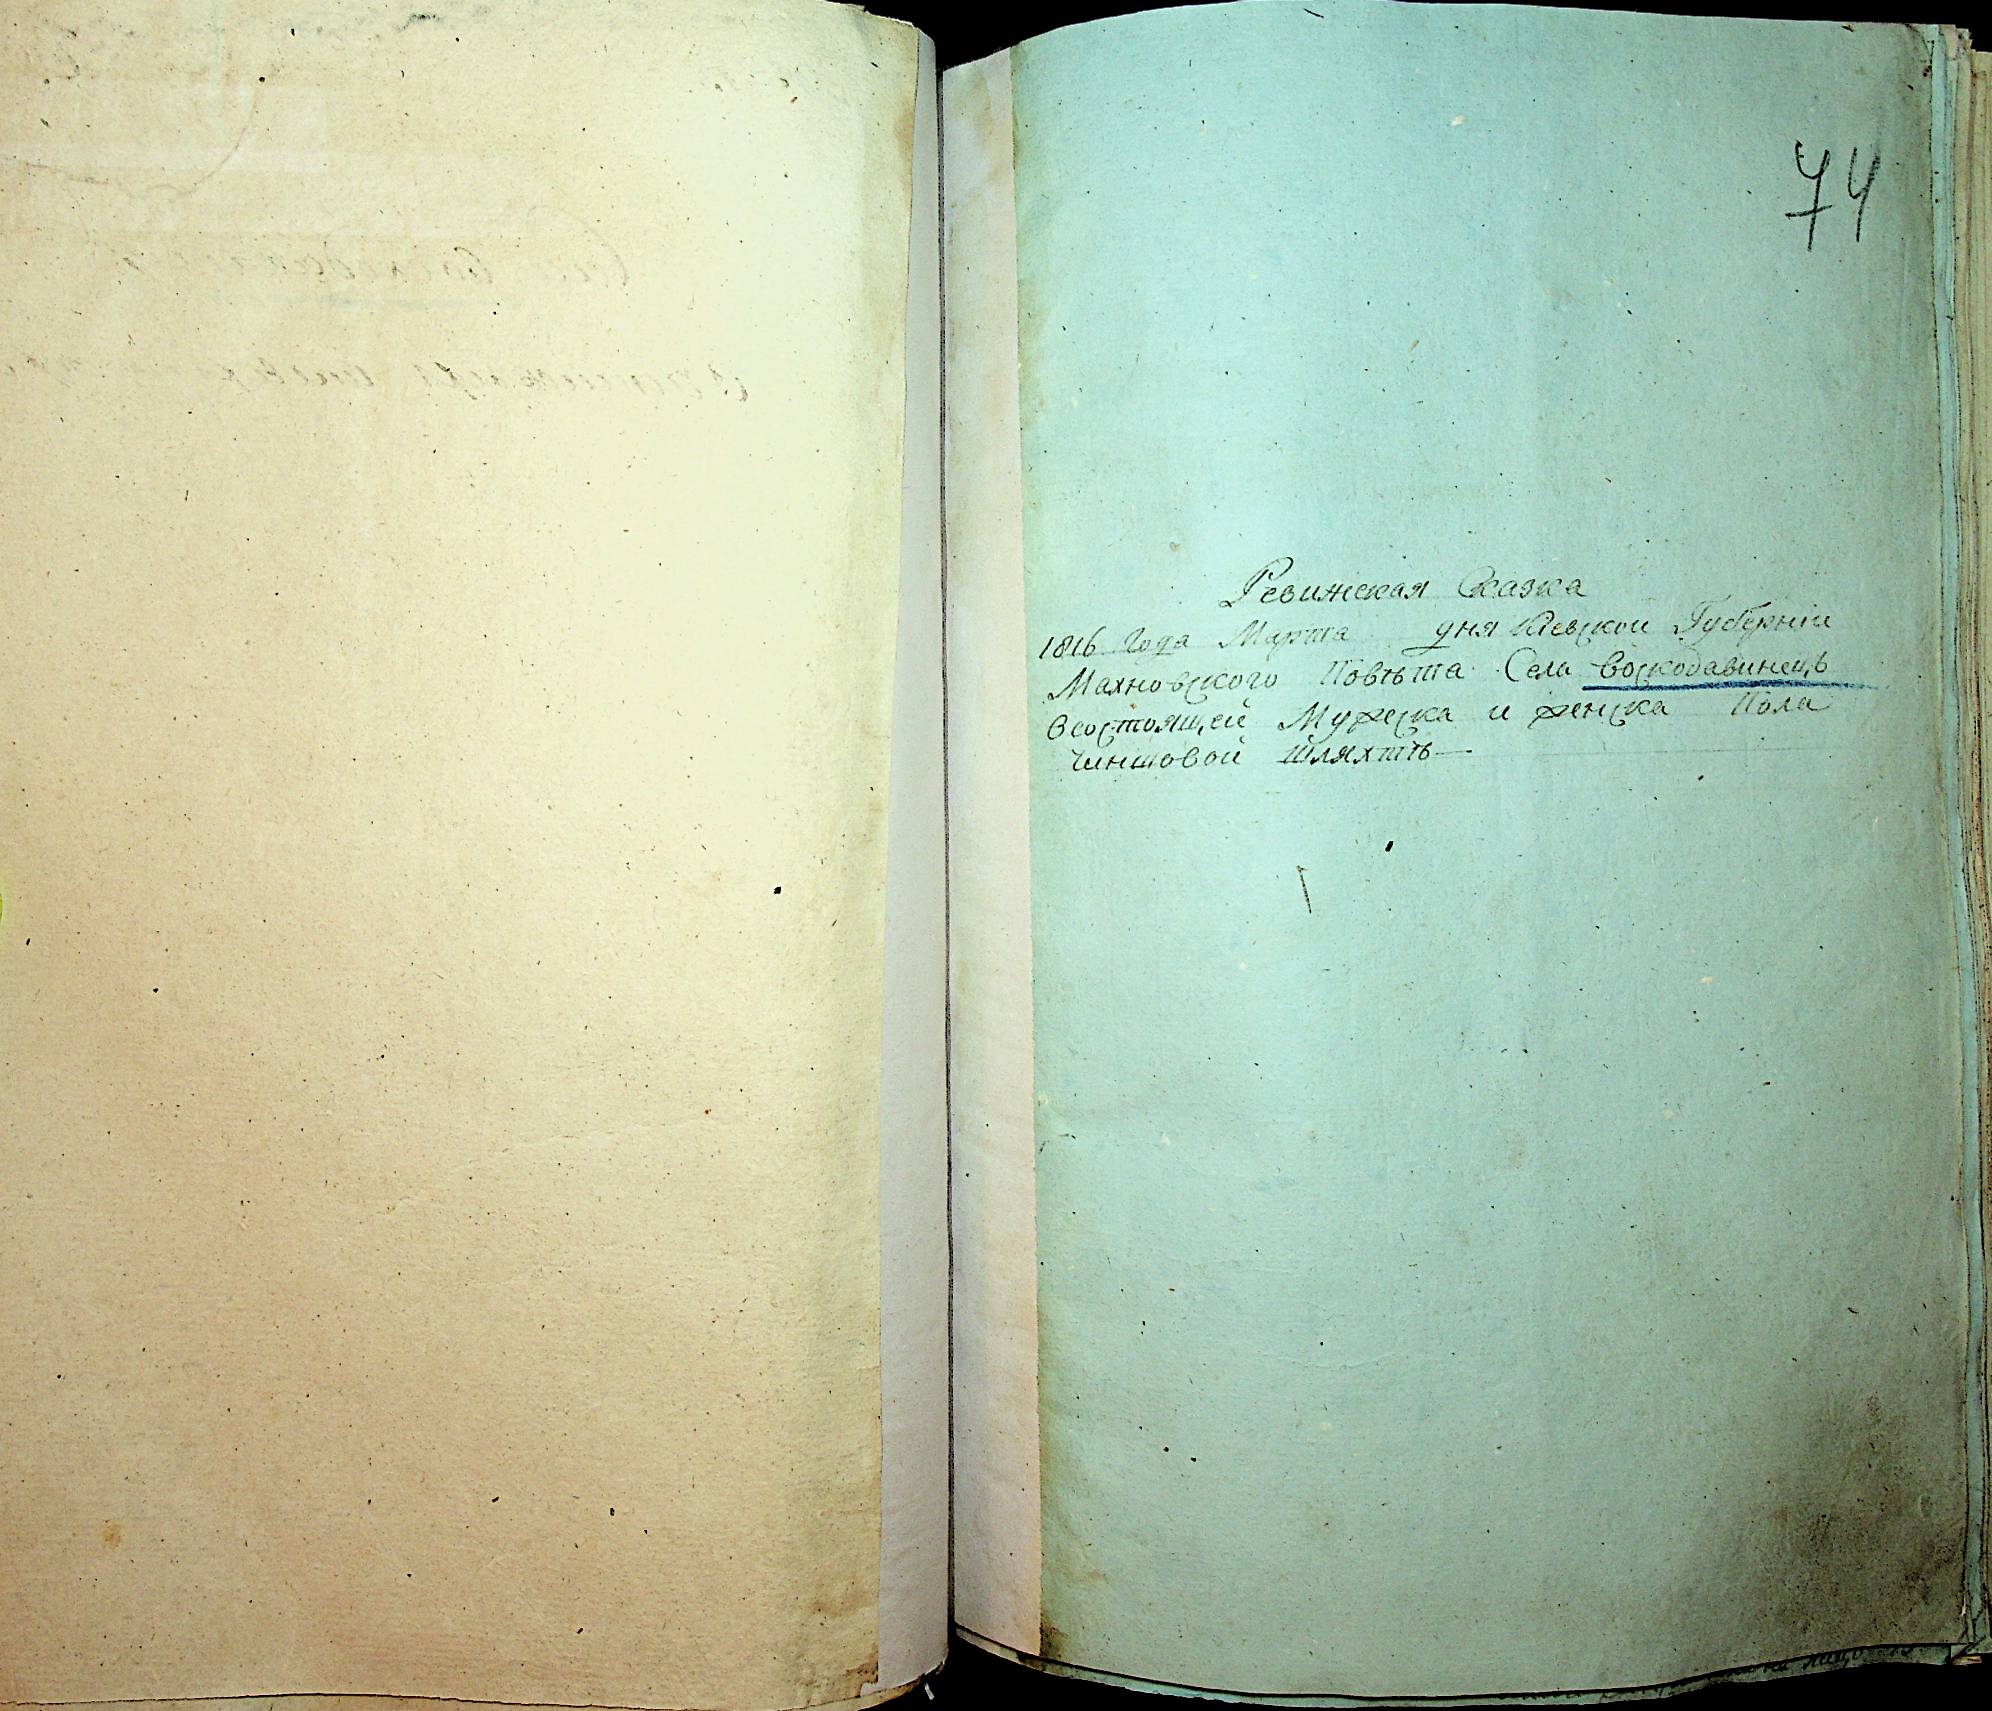 74
Ревижская Сказка
1816 Года Марта дня Кіевской Губерніи
Махновского Повѣта Села Воскодавинецъ
Всостоящей Мужеска и женска Пола
Чиншовой Шляхтѣ